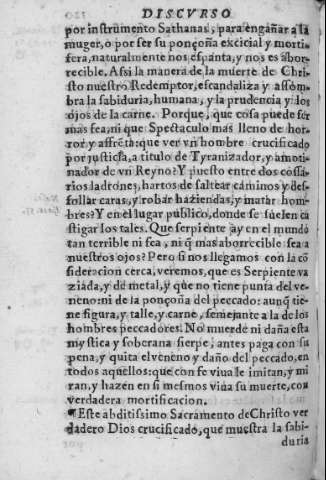 DISCVRSO
por instrumento Sathanas, para engañar a la
muger, o por ser su ponçoña exicial y morti-
fera, naturalmente nos espanta, y nos es abor-
recible. Assi la manera de la muerte de Chri-
sto nuestro Redemptor, escandaliza y assom-
bra la sabiduria, humana, y la prudencia y los
ojos de la carne. Porque, que cosa puede ser
mas fea, ni que Spectaculo mas lleno de hor-
ror y affrēta: que ver vn hombre crucificado
por justicia, a titulo de Tyranizador, y amoti-
nador de vn Reyno? Y puesto entre dos cossa-
rios ladrones, hartos de saltear caminos y des-
follar caras, y robar haziendas, y matar hom-
bres? Y en el lugar publico, donde se suelen ca
stigar los tales. Que serpiente ay en el mundo
tan terrible ni fea, ni q̄ mas aborrecible sea a
nuestros ojos? Pero si nos llegamos con la cō
sideracion cerca, veremos, que es Serpiente va
ziada, y de metal, y que no tiene punta del ve-
neno: ni de la ponçoña del peccado: aunq̄ tie-
ne figura, y talle, y carne, semejante a la de los
hombres peccadores. No muerde ni daña esta
mystica y soberana sierpe, antes paga con su
pena, y quita el veneno y daño del peccado, en
todos aquellos: que con fe viua le imitan, y mi
ran, y hazen en si mesmos viua su muerte, con
verdadera mortificacion.
¶Este abditissimo Sacramento de Christo ver
dadero Dios crucificado, que muestra la sabi-
duria